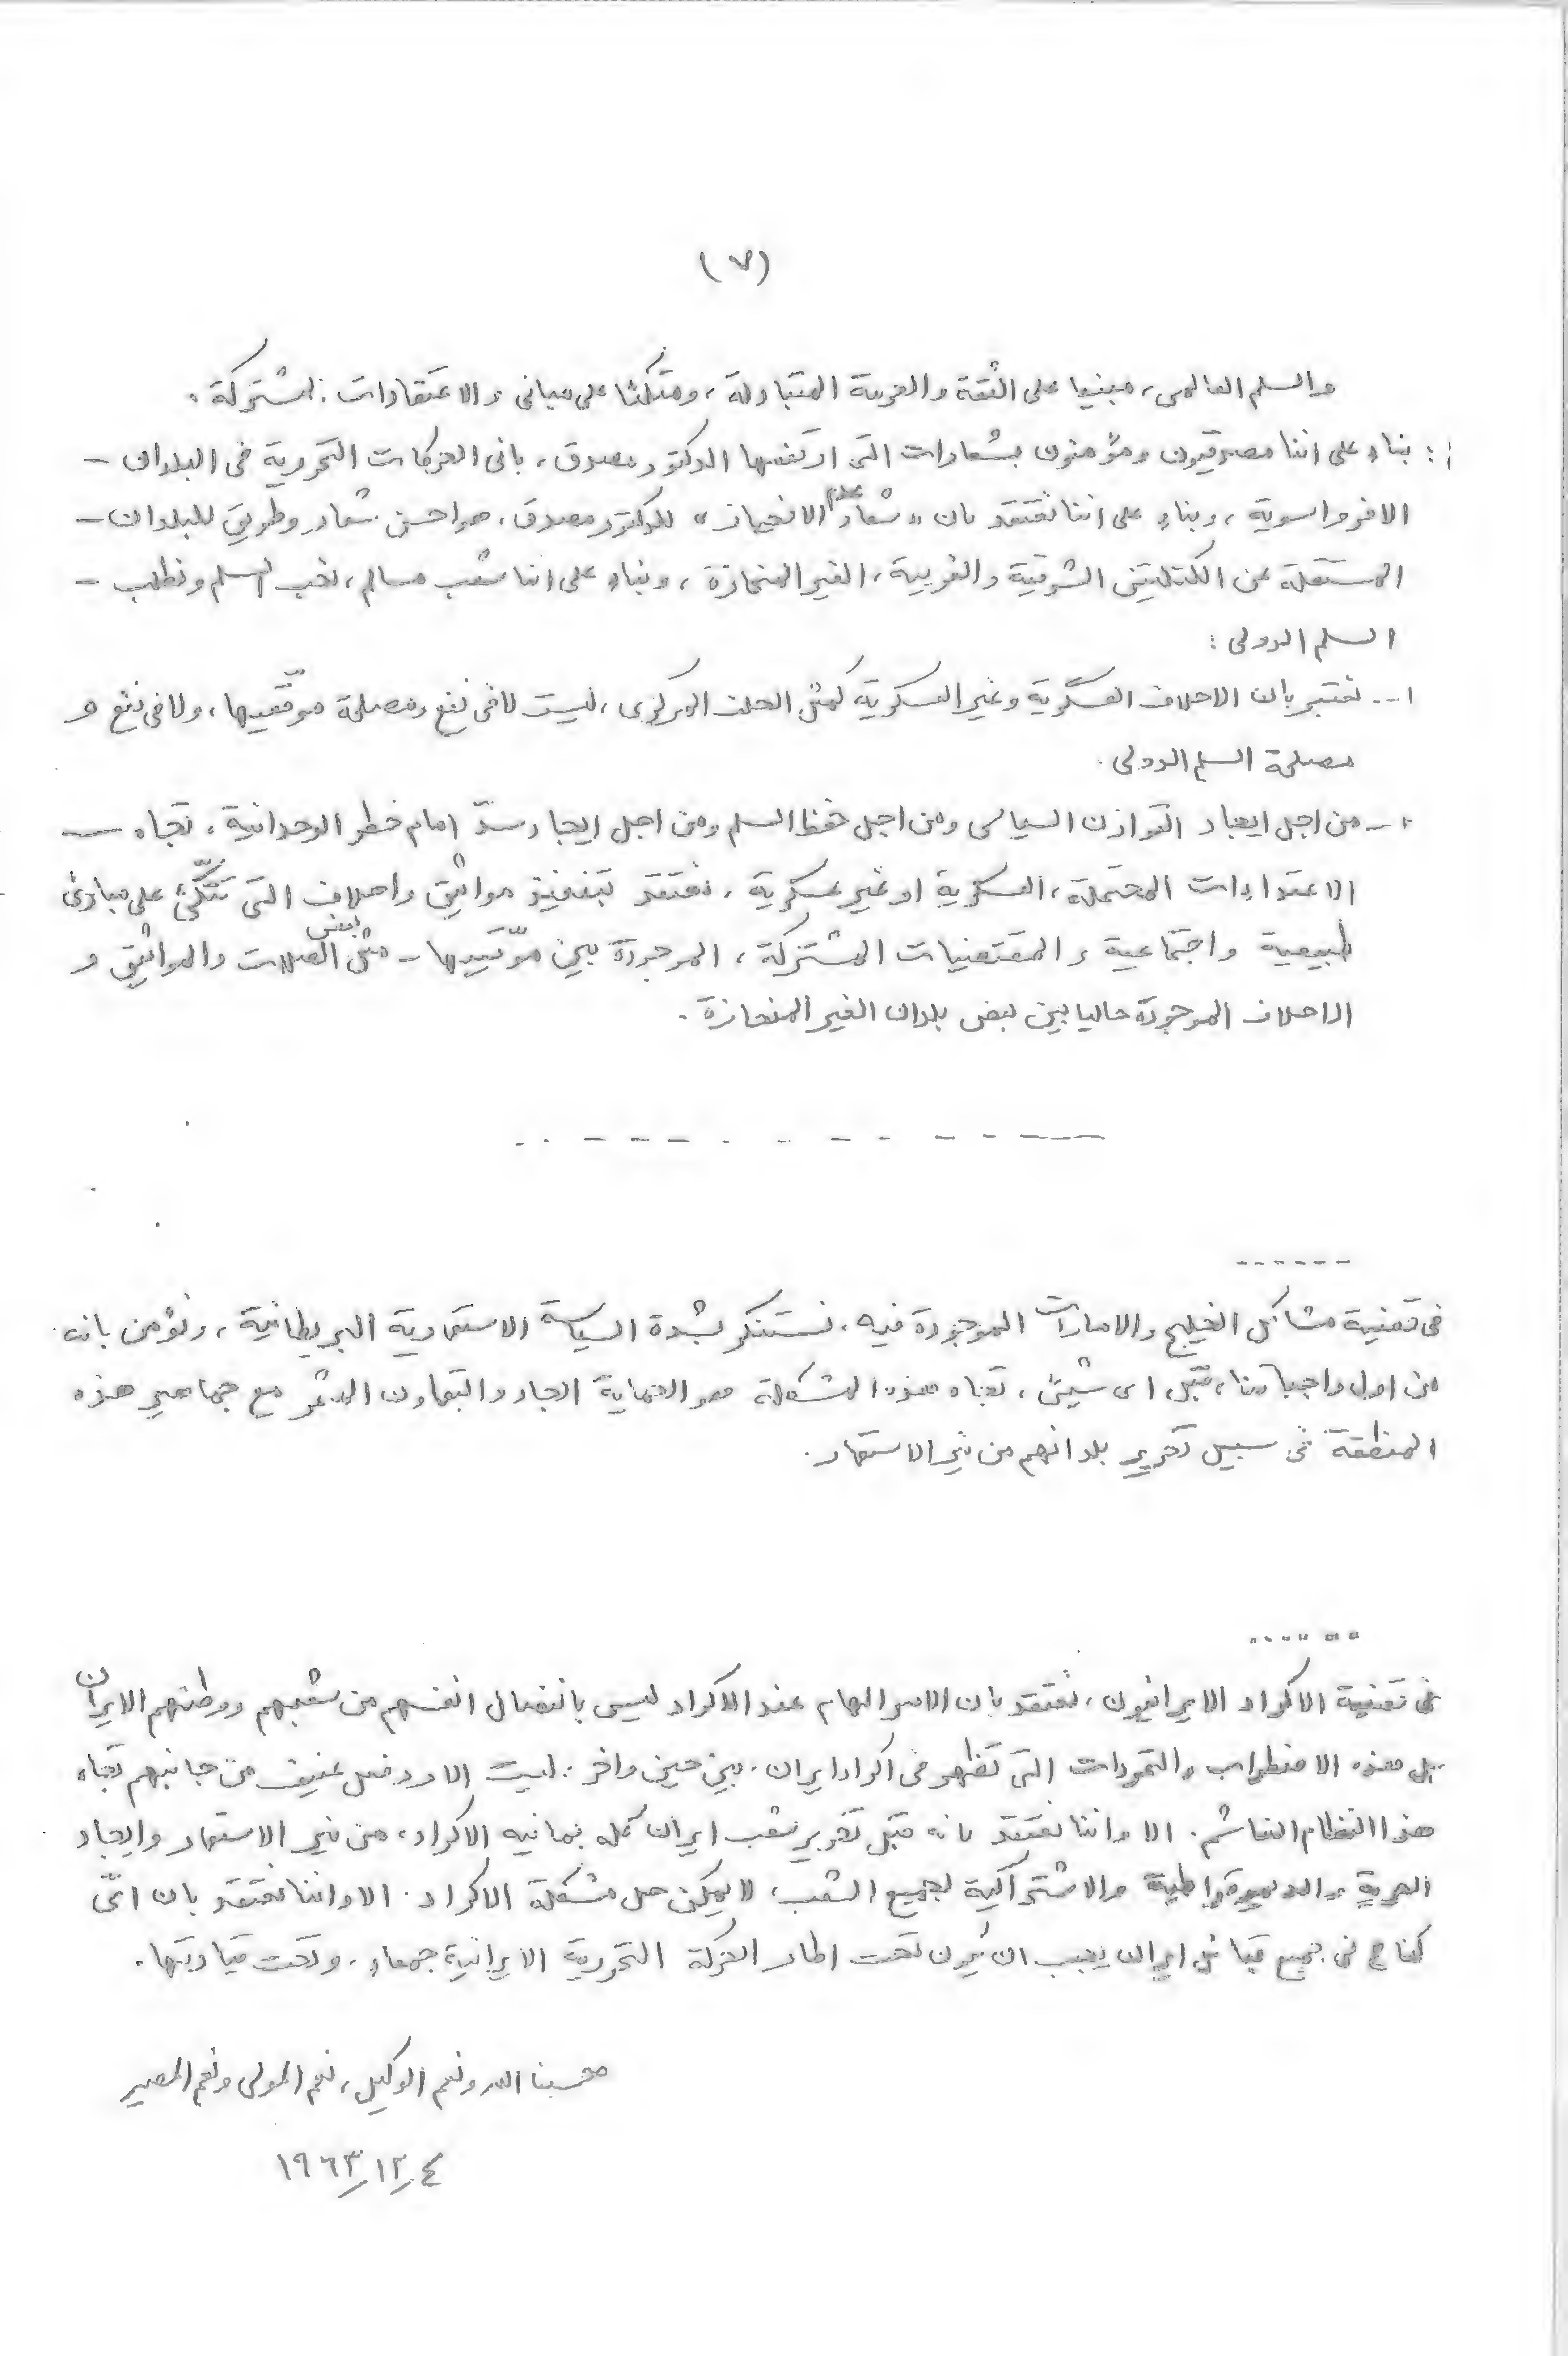 (٧)
والسلم العالمى، مبنيا على الثقة والحرية المتبادلة، ومتكئا على مبانى والاعتقادات المشتركة.
: بناء على اننا مصدقيون ومؤمنون بشعارات التى ارتفعها الدكتور مصدق، بانى الحركات التحررية فى البلدان –
الافرواسوية، وبناء على اننا نعتقد بان «شعار عدم الانحياز» للدكتور مصدق، هو احسن شعار وطريق للبلدان –
المستقلة عن الكتلتين الشرقية والغربية، الغير المنحازة، وبناء على اننا شعب مسالم، نحب السلم ونطلب –
السلم الدولى :
١ – نعتبر بان الاحلاف العسكرية وغير العسكرية كمثل الحلف المركزى، ليست لا فى نفع ومصلحة موقّعيها، ولا فى نفع و
مصلحة السلم الدولى.
– من اجل ايجاد التوازن السياسى ومن اجل حفظ السلم ومن اجل ايجاد سدّ امام خطر الوحدانية، تجاه –
الاعتداءات المحتملة، العسكرية او غير عسكرية، نعتقد بتنفيذ مواثيق واحلاف التى تتكّئ على مبادئ
طبيعية واجتماعية والمقتضيات المشتركة، الموجودة بين مؤيّديها – مثل بعض الصلات والمواثيق و
الاحلاف الموجودة حاليا بين بعض بلدان الغير المنحازة.
فى قضية مشاكل الخليج والامارات الموجودة فيه، نستنكر بشدة السياسة الاستعمارية البريطانية، ونؤمن بانه
من اول واجباتنا، قبل اى شيئ، تجاه هذه المشكلة هو الحماية الجاد والتعاون المثمر مع جماهير هذه
المنطقة فى سبيل تحرير بلدانهم من نير الاستعمار.
فى قضية الاكراد الايرانيون، نعتقد بان الامر الهام عند الاكراد ليس بانفصال انفسهم من شعبهم ووطنهم الايران
بل هذه الاضطراب والتمردات التى تظهر فى اكراد ايران، بين حين واخر، ليست الا رد فعل عنيف من جانبهم تجاه
هذا النظام الغاشم. الا واننا نعتقد بانه قبل تحرير شعب ايران كله بما فيه الاكراد، من نير الاستعمار وايجاد
الحرية والديموقراطية والاشتراكية لجميع الشعب، لا يمكن حل مشكلة الاكراد. الا واننا نعتقد بان ائّى
كفاح فى جميع قبائل ايران يجب ان يكون تحت اطار الحركة التحررية الايرانية جمعاء، وتحت قيادتها.
حسبنا الله ونعم الوكيل، نعم المولى ونعم المصير
٤/١٢/١٩٦٣